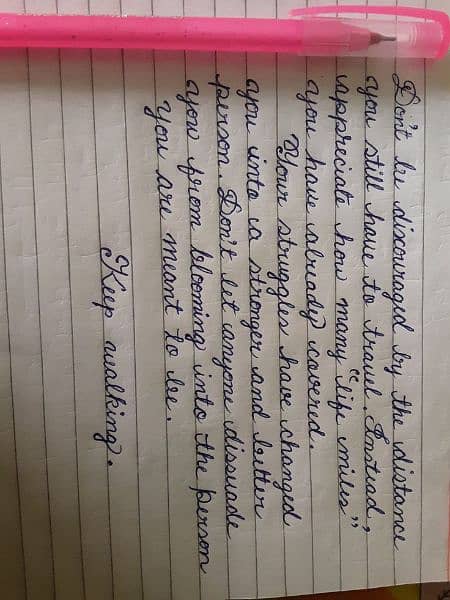 Don't be discouraged by the distance
you still have to travel. Instead,
appreciate how many "life miles"
you have already covered.
Your struggles have changed
you into a stronger and better
person Don't let anyone dissuade
you from blooming into the person
you are meant to be.
Keep walking.